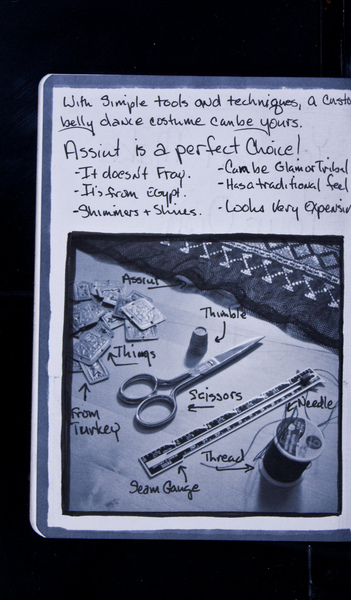 With Simple tools and techniques, a Custo
belly dance costume can be yours.
Assiut is a perfect Choice!
- It doesn't Fray.
- It's from Egypt.
- Shimmers + Shines.
- Can be Glam or Tribal
- Has a traditional feel
- Looks Very Expensiv
Assiut
Thimble
Things
Scissors
Needle
From
Turkey
Thread
Seam Gauge